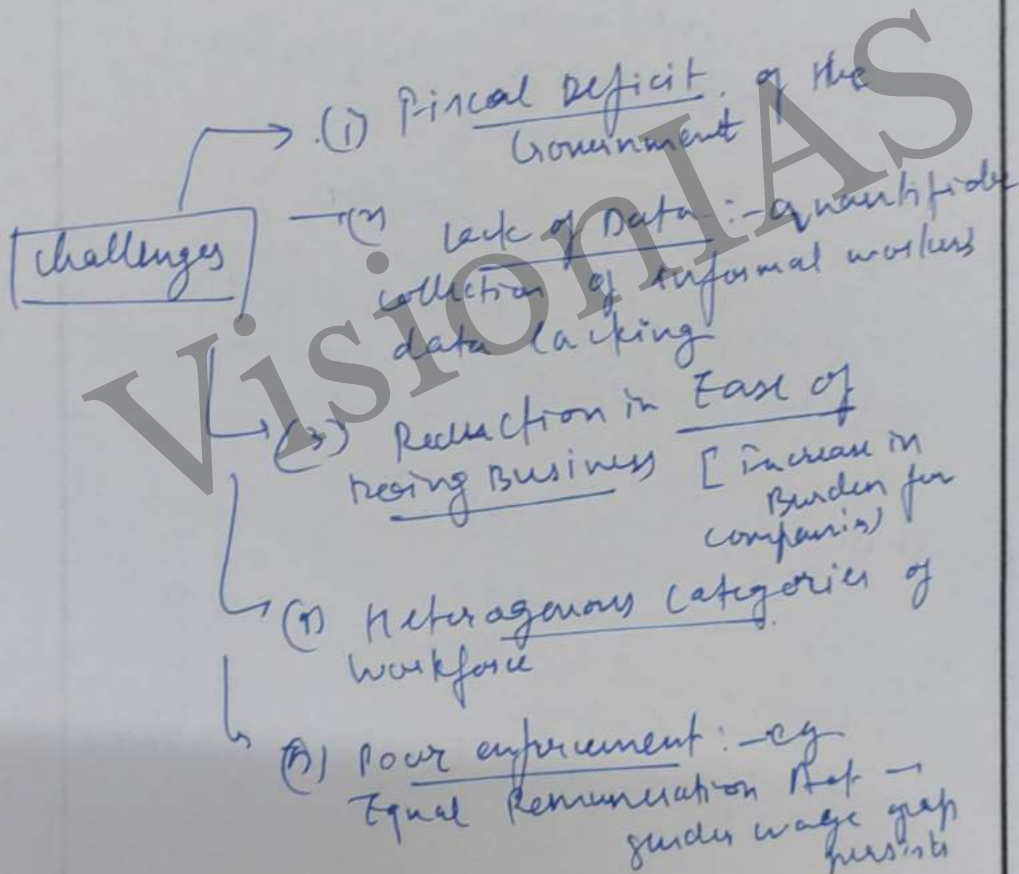 challenges
(1) Fiscal Deficit of the
Government
Lack of Data :- quantifiable
collection of informal workers
data lacking
(3) Reduction in Ease of
Doing Business [Increase in
Burden for
companies)
Heterogenous categories of
workforce
Poor enforcement :- eg
Equal Remuneration Act -
gender wage gap
persists
VisionIAS